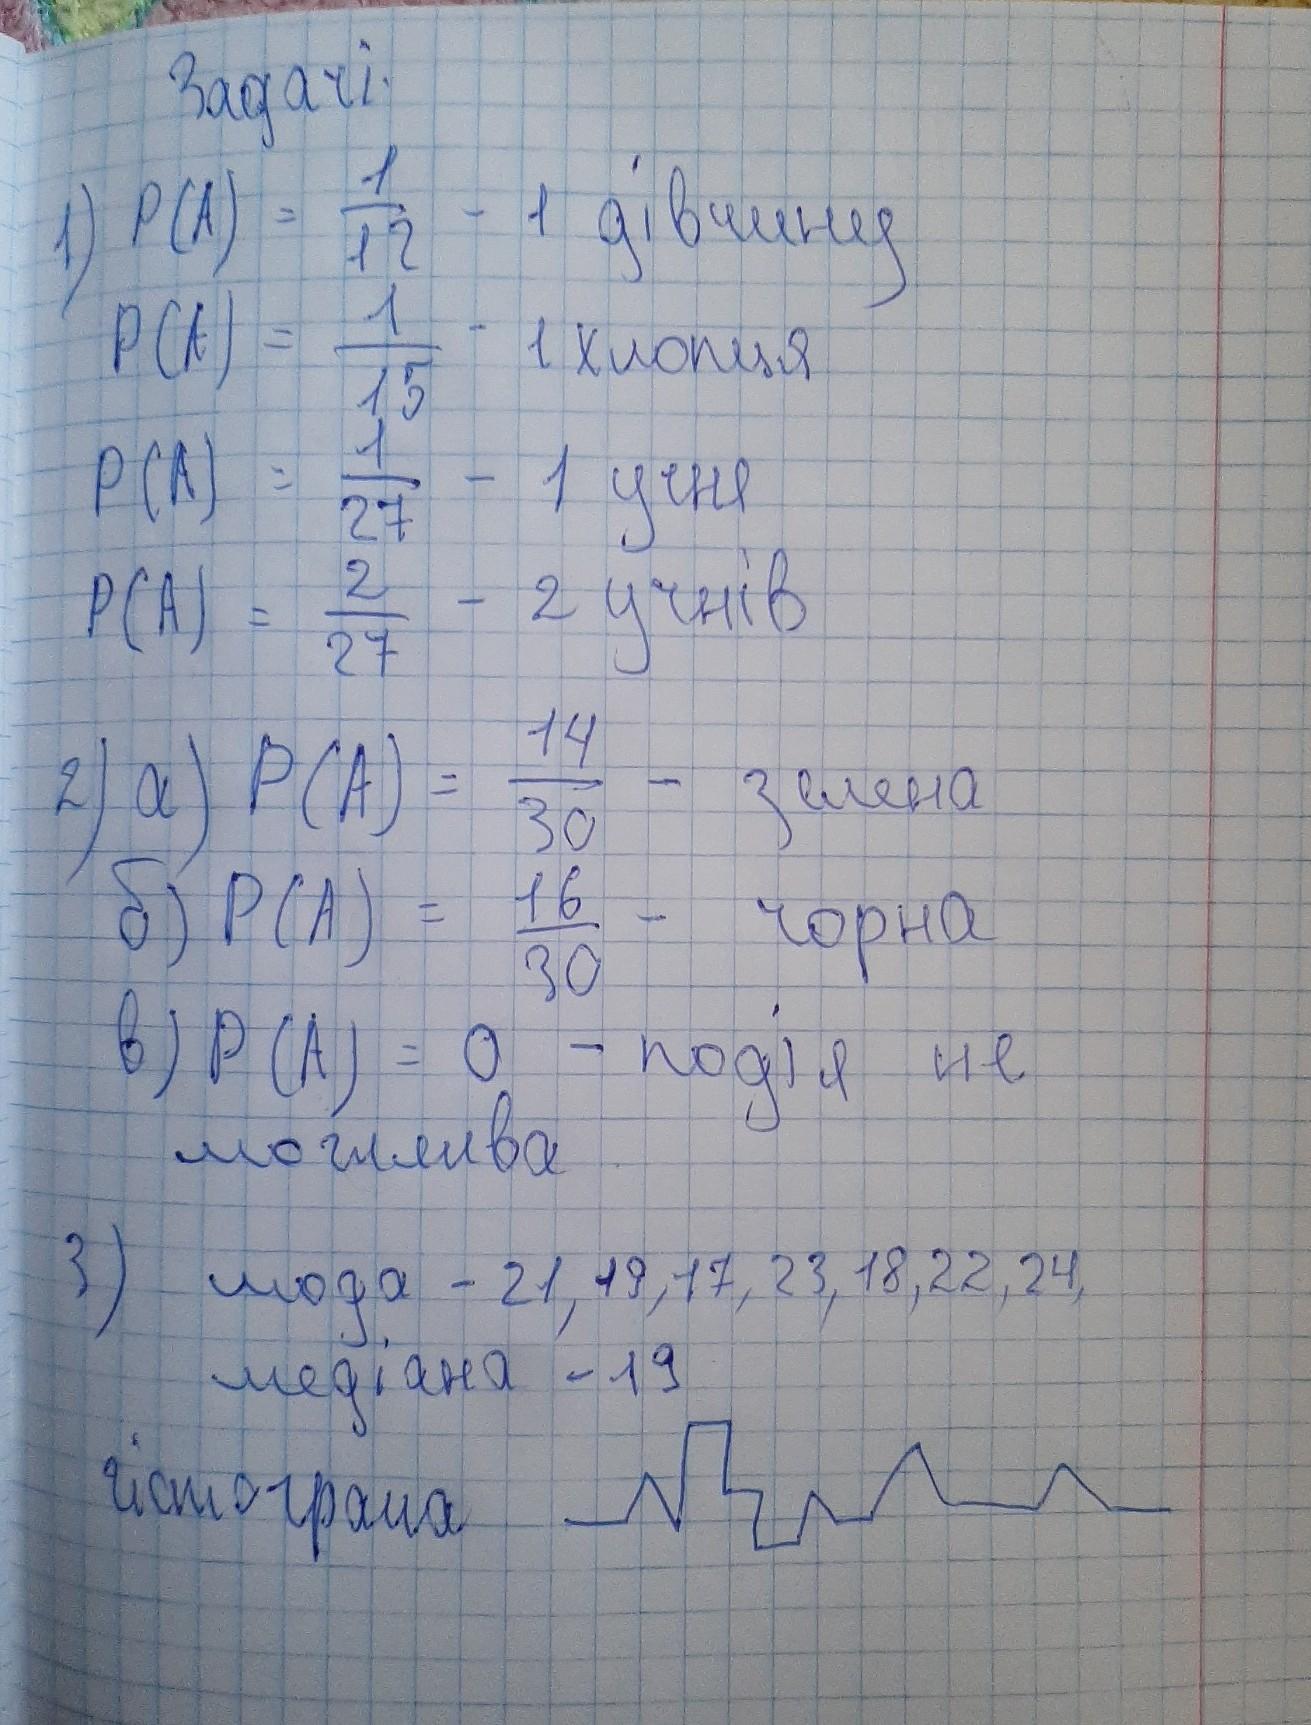 Задачі.
1) P(A) = 1/12 - 1 дівчину
P(A) = 1/15 - 1 хлопця
P(A) = 1/27 - 1 учня
P(A) = 2/27 - 2 учнів
2) а) P(A) = 14/30 - зелена
б) P(A) = 16/30 - чорна
в) P(A) = 0 - подія не
можлива
3) мода - 21, 19, 17, 23, 18, 22, 24,
медіана - 19
гістограма